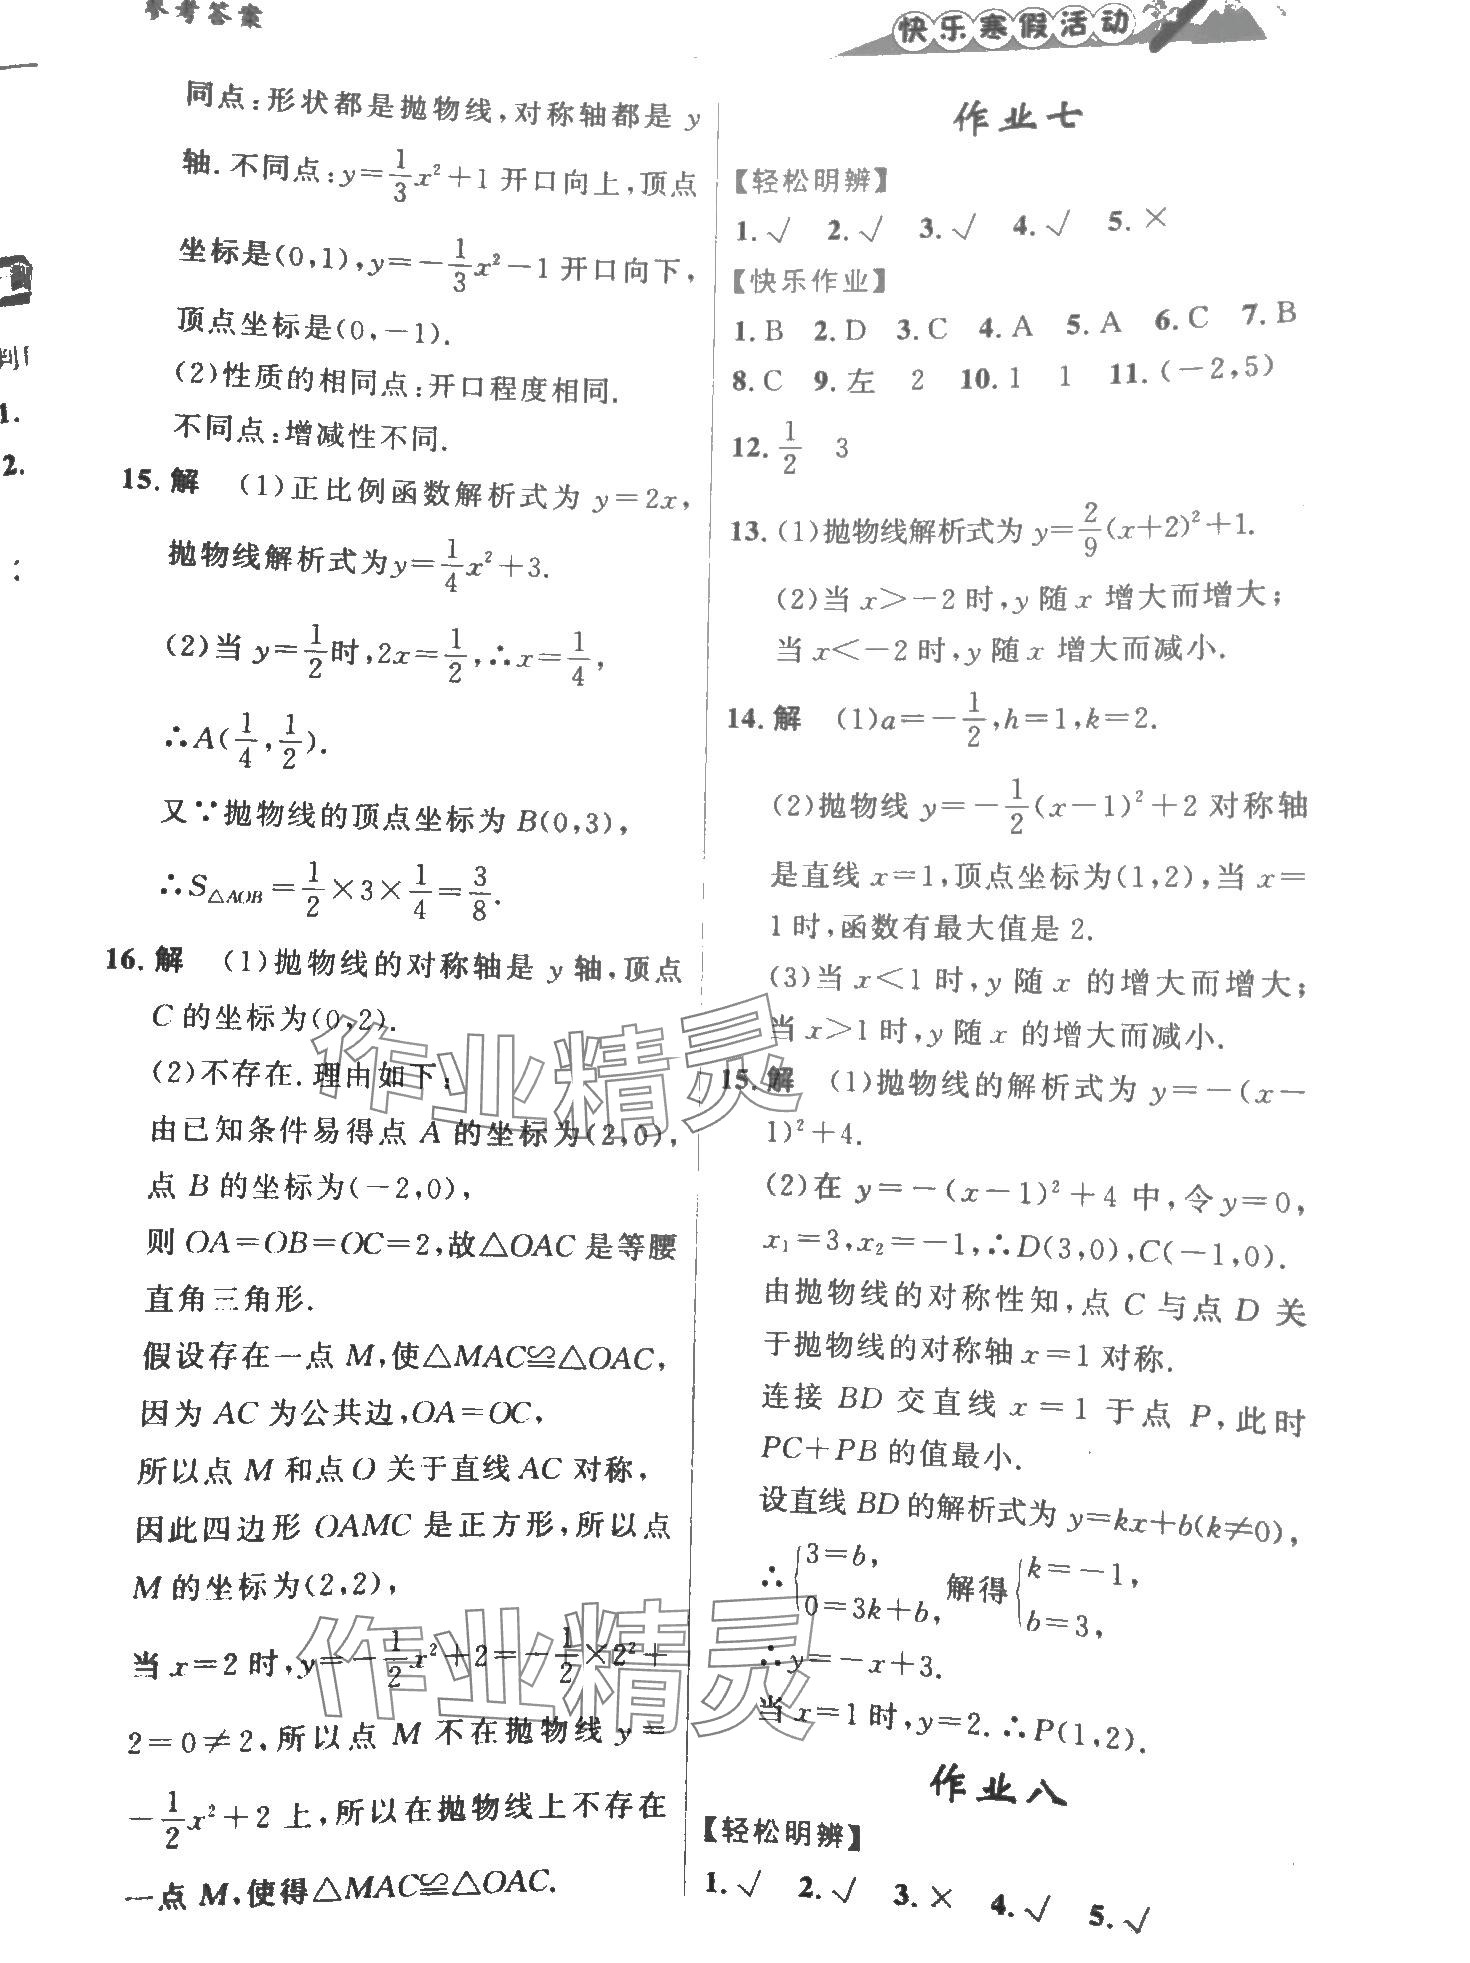 参考答案
快乐寒假活动
同点:形状都是抛物线,对称轴都是 y
轴.不同点:y=\frac{1}{3}x²+1 开口向上,顶点
坐标是(0,1),y=-\frac{1}{3}x²-1 开口向下,
顶点坐标是(0,-1).
(2)性质的相同点:开口程度相同.
不同点:增减性不同.
15.解 (1)正比例函数解析式为 y=2x,
抛物线解析式为y=\frac{1}{4}x²+3.
(2)当 y=\frac{1}{2}时,2x=\frac{1}{2},∴x=\frac{1}{4},
∴A(\frac{1}{4},\frac{1}{2}).
又∵抛物线的顶点坐标为 B(0,3),
∴S△AOB=\frac{1}{2}×3×\frac{1}{4}=\frac{3}{8}.
16.解 (1)抛物线的对称轴是 y 轴,顶点
C 的坐标为(0,2).
(2)不存在.理由如下:
由已知条件易得点 A 的坐标为(2,0),
点 B 的坐标为(-2,0),
则 OA=OB=OC=2,故△OAC 是等腰
直角三角形.
假设存在一点 M,使△MAC≌△OAC,
因为 AC 为公共边,OA=OC,
所以点 M 和点 O 关于直线 AC 对称,
因此四边形 OAMC 是正方形,所以点
M 的坐标为(2,2),
当 x=2 时,y=-\frac{1}{2}x²+2=-\frac{1}{2}×2²+
2=0≠2,所以点 M 不在抛物线 y=
-\frac{1}{2}x²+2 上,所以在抛物线上不存在
一点 M,使得△MAC≌△OAC.
作业七
【轻松明辨】
1.√ 2.√ 3.√ 4.√ 5.×
【快乐作业】
1.B 2.D 3.C 4.A 5.A 6.C 7.B
8.C 9.左 2 10.1 1 11.(-2,5)
12.\frac{1}{2} 3
13.(1)抛物线解析式为 y=\frac{2}{9}(x+2)²+1.
(2)当 x>-2 时,y 随 x 增大而增大;
当 x<-2 时,y 随 x 增大而减小.
14.解 (1)a=-\frac{1}{2},h=1,k=2.
(2)抛物线 y=-\frac{1}{2}(x-1)²+2 对称轴
是直线 x=1,顶点坐标为(1,2),当 x=
1 时,函数有最大值是 2.
(3)当 x<1 时,y 随 x 的增大而增大;
当 x>1 时,y 随 x 的增大而减小.
15.解 (1)抛物线的解析式为 y=-(x-
1)²+4.
(2)在 y=-(x-1)²+4 中,令 y=0,
x₁=3,x₂=-1,∴D(3,0),C(-1,0).
由抛物线的对称性知,点 C 与点 D 关
于抛物线的对称轴 x=1 对称.
连接 BD 交直线 x=1 于点 P,此时
PC+PB 的值最小.
设直线 BD 的解析式为 y=kx+b(k≠0),
∴{3=b, 0=3k+b, 解得{k=-1, b=3,
∴y=-x+3.
当 x=1 时,y=2.∴P(1,2).
作业八
【轻松明辨】
1.√ 2.√ 3.× 4.√ 5.√
1.
2.
作业精灵
作业精灵